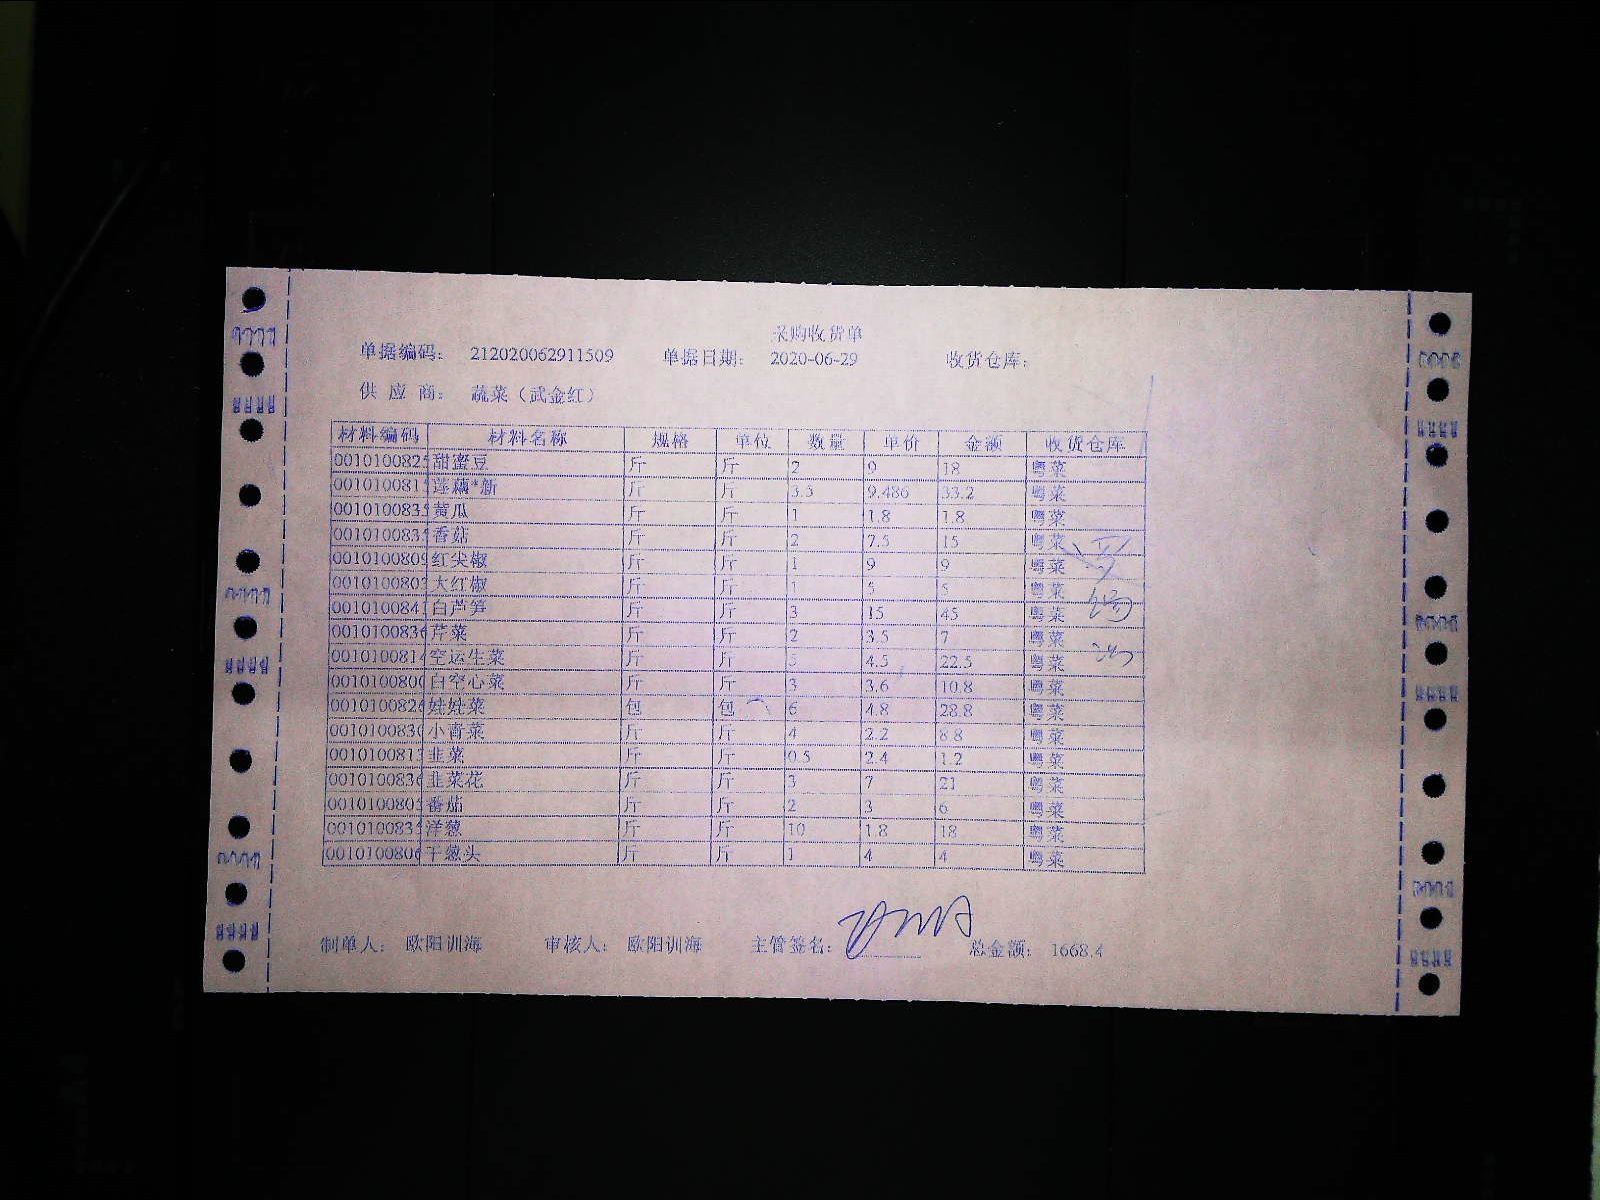 采购收货单
单据编码： 212020062911509 单据日期： 2020-06-29 收货仓库：
供 应 商： 蔬菜（武金红）
材料编码 材料名称 规格 单位 数量 单价 金额 收货仓库
0010100825 甜蜜豆 斤 斤 2 9 18 粤菜
001010081 莲藕*新 斤 斤 3.5 9.486 33.2 粤菜
0010100835 黄瓜 斤 斤 1 1.8 1.8 粤菜
0010100835 香菇 斤 斤 2 7.5 15 粤菜
0010100809 红尖椒 斤 斤 1 9 9 粤菜
0010100803 大红椒 斤 斤 1 5 5 粤菜
0010100841 白芦笋 斤 斤 3 15 45 粤菜
0010100836 芹菜 斤 斤 2 3.5 7 粤菜
0010100814 空运生菜 斤 斤 5 4.5 22.5 粤菜
0010100800 白空心菜 斤 斤 3 3.6 10.8 粤菜
0010100826 娃娃菜 包 包 6 4.8 28.8 粤菜
0010100830 小青菜 斤 斤 4 2.2 8.8 粤菜
0010100813 韭菜 斤 斤 0.5 2.4 1.2 粤菜
0010100836 韭菜花 斤 斤 3 7 21 粤菜
0010100805 番茄 斤 斤 2 3 6 粤菜
0010100835 洋葱 斤 斤 10 1.8 18 粤菜
0010100806 干葱头 斤 斤 1 4 4 粤菜
制单人： 欧阳训海 审核人： 欧阳训海 主管签名： 总金额： 1668.4